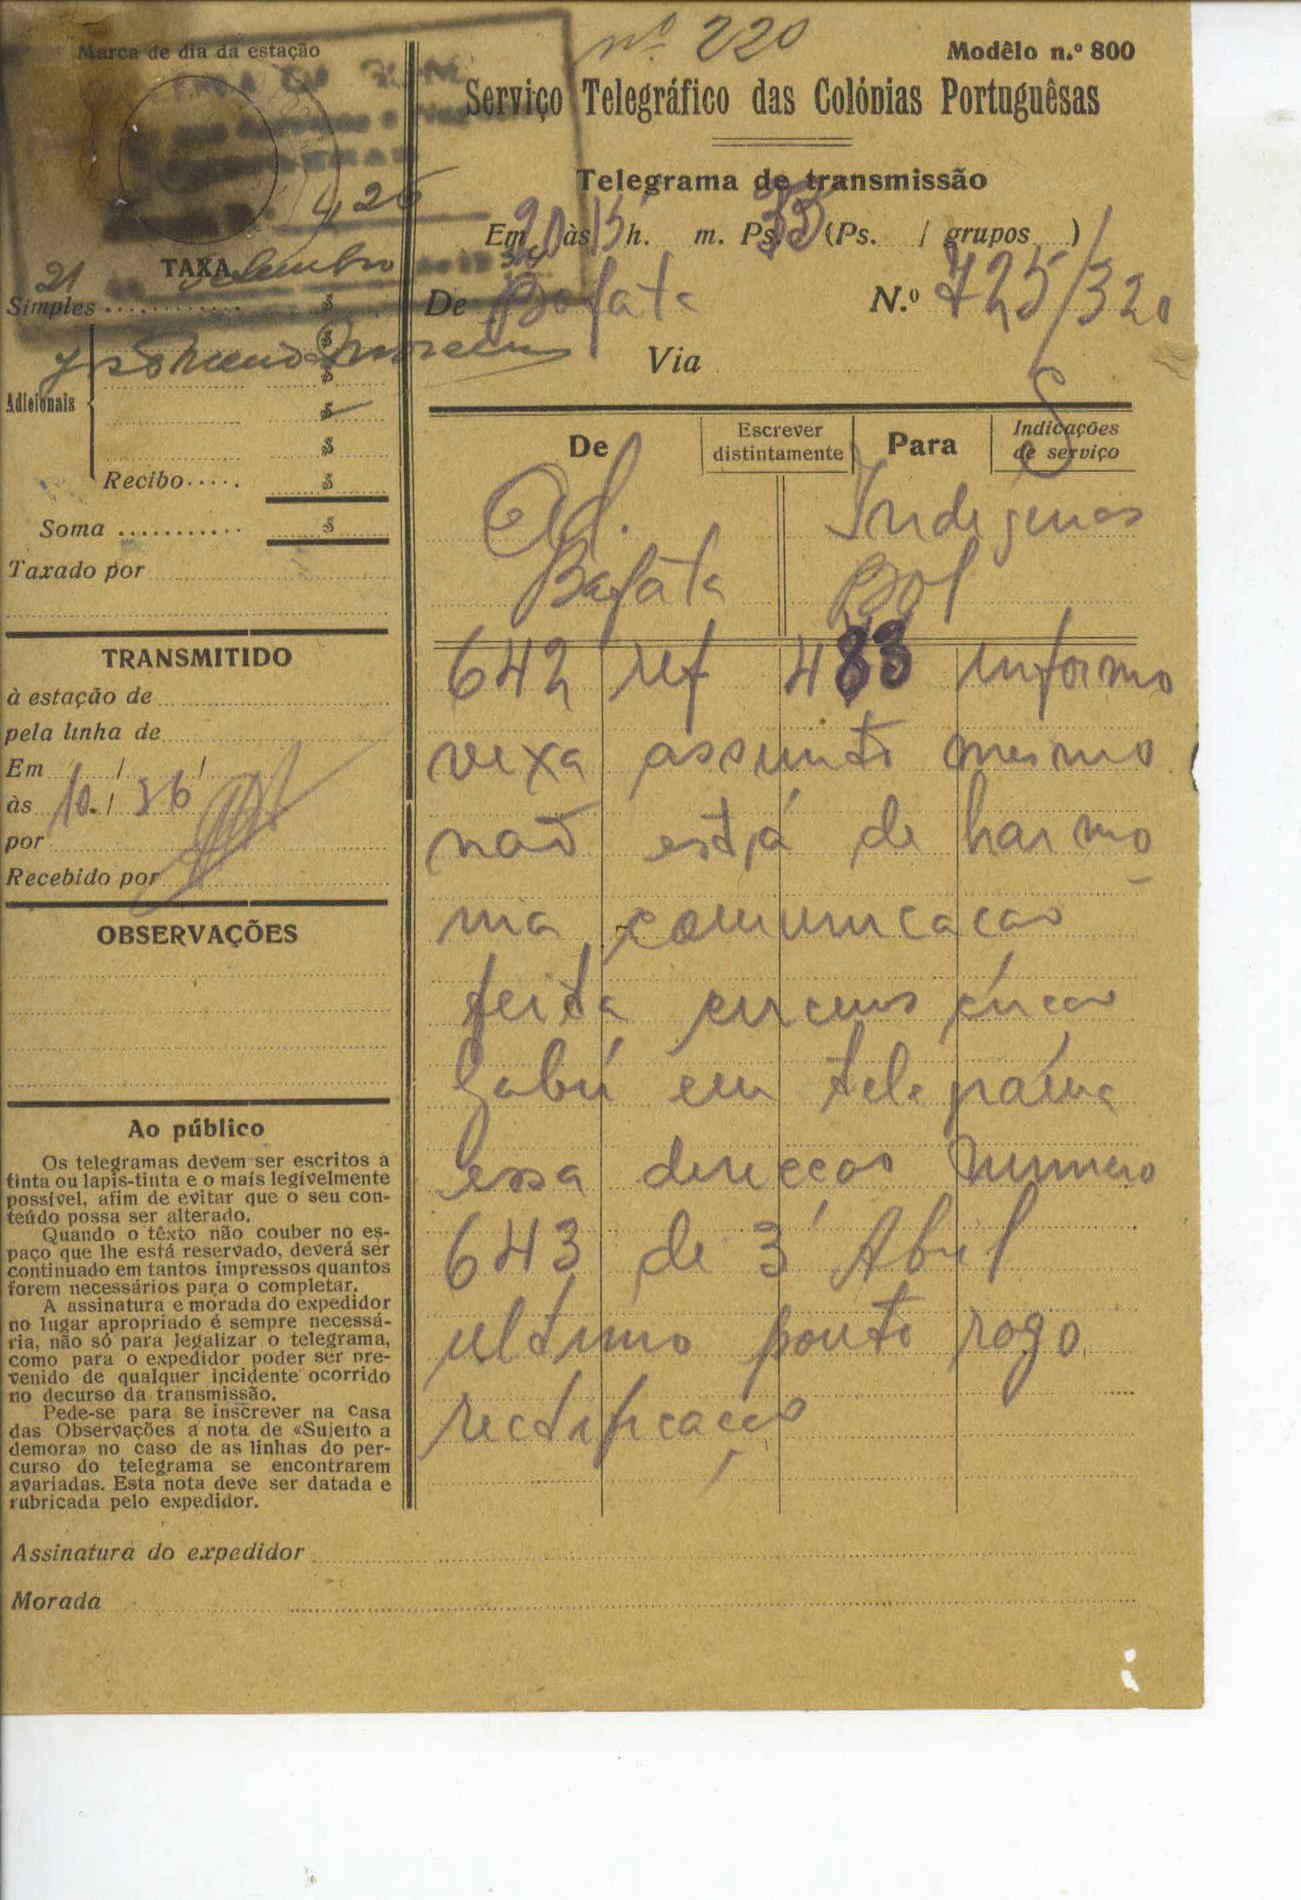 nº 220
Marca de dia da estação
Modêlo n.º 800
Serviço Telegráfico das Colónias Portuguêsas
Telegrama de transmissão
Em 20 às 15 h. m. Ps. 35 (Ps. / grupos )
De Bafata N.º 725/320
Via
426
TAXA
21 Setembro 34
Simples $
$
$
Adicionais $
$
Recibo $
Soma $
Taxado por
De
Escrever distintamente
Para
Indicações de serviço
S
Ad. Indigenas
Bafáta Bol
642 ref 483 informo
vexa assunto mesmo
não está de harmo
nia comunicacao
feita circunscricao
Gabú em telegrama
essa direccao numero
643 de 3 Abril
ultimo ponto rogo
rectificação
TRANSMITIDO
à estação de
pela linha de
Em / /
às 10 / 36
por
Recebido por
OBSERVAÇÕES
Ao público
Os telegramas devem ser escritos a
tinta ou lapis-tinta e o mais legivelmente
possivel, afim de evitar que o seu con-
teúdo possa ser alterado.
Quando o têxto não couber no es-
paço que lhe está reservado, deverá ser
continuado em tantos impressos quantos
forem necessários para o completar.
A assinatura e morada do expedidor
no lugar apropriado é sempre necessá-
ria, não só para legalizar o telegrama,
como para o expedidor poder ser pre-
venido de qualquer incidente ocorrido
no decurso da transmissão.
Pede-se para se inscrever na casa
das Observações a nota de «Sujeito a
demora» no caso de as linhas do per-
curso do telegrama se encontrarem
avariadas. Esta nota deve ser datada e
rubricada pelo expedidor.
Assinatura do expedidor
Morada